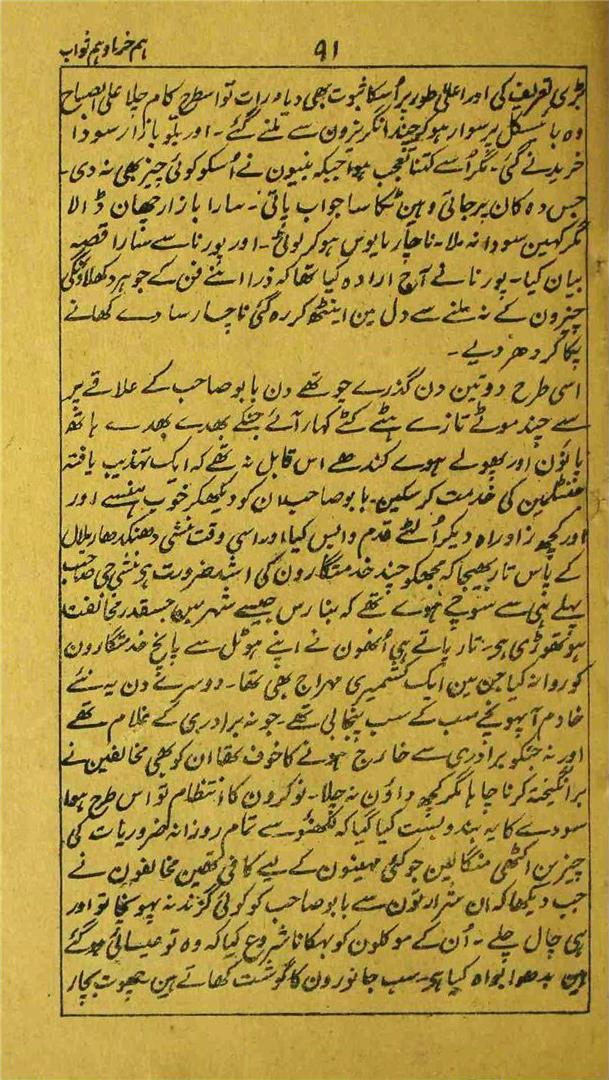 ہم خرما و ہم ثواب
۹۱
بڑی تعریف کی اور اعلیٰ طور پر اُسکا ثبوت بھی دیا۔ رات تو اسطرح کام چلا علی الصباح
وہ بائسکل پر سوار ہو کر چند انگریزون سے ملنے گئے۔ اور بلّو بازار سودا
خریدنے گئی۔ مگر اُسے کتنا تعجب ہوا جبکہ بنیون نے اُسکو کوئی چیز بھی نہ دی۔
جس دوکان پر جاتی وہین ٹکا سا جواب پاتی۔ سارا بازار چھان ڈالا
مگر کہین سودا نہ ملا۔ ناچار مایوس ہو کر لوٹی۔ اور پورنا سے سارا قصہ
بیان کیا۔ پورنا نے آج ارادہ کیا تھا کہ ذرا اپنے فن کے جوہر دکھلاؤنگی
چیزون کے نہ ملنے سے دل مین اینٹھ کر رہ گئی ناچار سادے کھانے
پکا کر دھر دیے۔
اسی طرح دو تین دن گذرے چوتھے دن بابو صاحب کے علاقے پر
سے چند موٹے تازے ہٹے کٹے کہار آئے جنکے بھدے بھدے ہاتھ
پائون اور پھولے ہوے کندھے اس قابل نہ تھے کہ ایک تہذیب یافتہ
جنٹلمین کی خدمت کر سکین۔ بابو صاحب ان کو دیکھکر خوب ہنسے اور
اور کچھ زاد راہ دیکر اُلٹے قدم واپس کیا اور اسی وقت منشی دھنکدھاریلال
کے پاس تار بھیجا کہ مجھکو چند خدمتگارون کی اشد ضرورت ہے منشی جی صاحب
پہلے ہی سے سوچے ہوے تھے کہ بنارس جیسے شہر مین جسقدر مخالفت
ہو تھوڑی ہے۔ تار پاتے ہی اُنھون نے اپنے ہوٹل سے پانچ خدمتگارون
کو روانہ کیا جن مین ایک کشمیری مہراج بھی تھا۔ دوسرے دن یہ نئے
خادم آ پہونچے سب کے سب پنجابی تھے۔ جو نہ برادری کے غلام تھے
اور نہ جنکو برادری سے خارج ہونے کا خوف تھا ان کو بھی مخالفین نے
برانگیختہ کرنا چاہا مگر کچھ داؤن نہ چلا۔ نوکرون کا انتظام تو اس طرح ہوا
سودے کا یہ بندوبست کیا گیا کہ لکھنؤ سے تمام روزانہ ضروریات کی
چیزین اکٹھی منگالین جو کئی مہینون کے لیے کافی تھین مخالفون نے
جب دیکھا کہ ان شرارتون سے بابو صاحب کو کوئی گزند نہ پہونچا تو اور
ہی چال چلے۔ اُن کے موکلون کو بہکانا شروع کیا کہ وہ تو عیسائی ہو گئے
ہین بدھوا بواہ کیا ہے۔ سب جانورون کا گوشت کھاتے ہین چھوت بچار